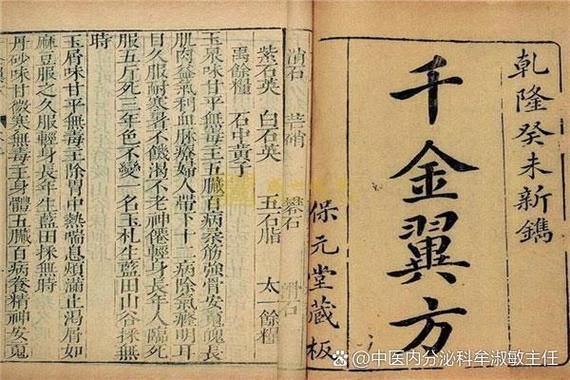 乾隆癸未新鐫
千金翼方
保元堂藏板
消石 芒硝 礬石 滑石
紫石英 白石英 五石脂 太一餘糧
禹餘糧 石中黃子
玉泉味甘平無毒主五臟百病柔筋強骨安䰟魄長
肌肉益氣利血脉療婦人帶下十二病除氣癃明耳
目久服耐寒暑不飢渴不老神僊輕身長年人臨死
服五斤死三年色不變一名玉札生藍田山谷採無
時
玉屑味甘平無毒主除胃中熱喘息煩滿止渴屑如
麻豆服之久服輕身長年生藍田採無時
丹砂味甘微寒無毒主身體五臟百病養精神安䰟
@中医内分泌科牟淑敏主任